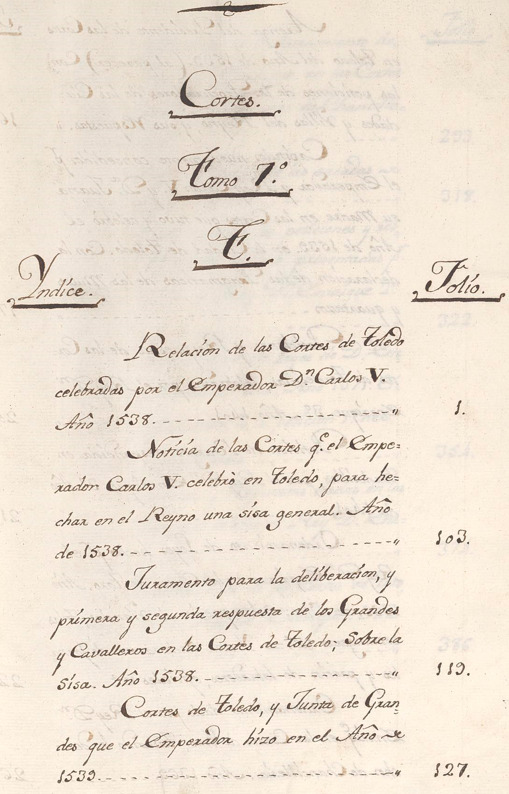 Cortes.
Tomo 7.º
T.
Yndíce. Folio.
Relacion de las Cortes de Toledo
celebradas por el Emperador D.ⁿ Carlos V.
Año 1538. - - - - - - - - - - - - - - - - „ 1.
Noticia de las Cortes q.e el Empe=
rador Carlos V. celebrò en Toledo, para he=
char en el Reyno una sisa general. Año
de 1538. - - - - - - - - - - - - - - - - „ 103.
Juramento para la deliberacion, y
primera y segunda respuesta de los Grandes
y Cavalleros en las Cortes de Toledo; Sobre la
Sisa. Año 1538. - - - - - - - - - - - - „ 119.
Cortes de Toledo, y Junta de Gran=
des que el Emperador hizo en el Año de
1539. - - - - - - - - - - - - - - - - „ 127.